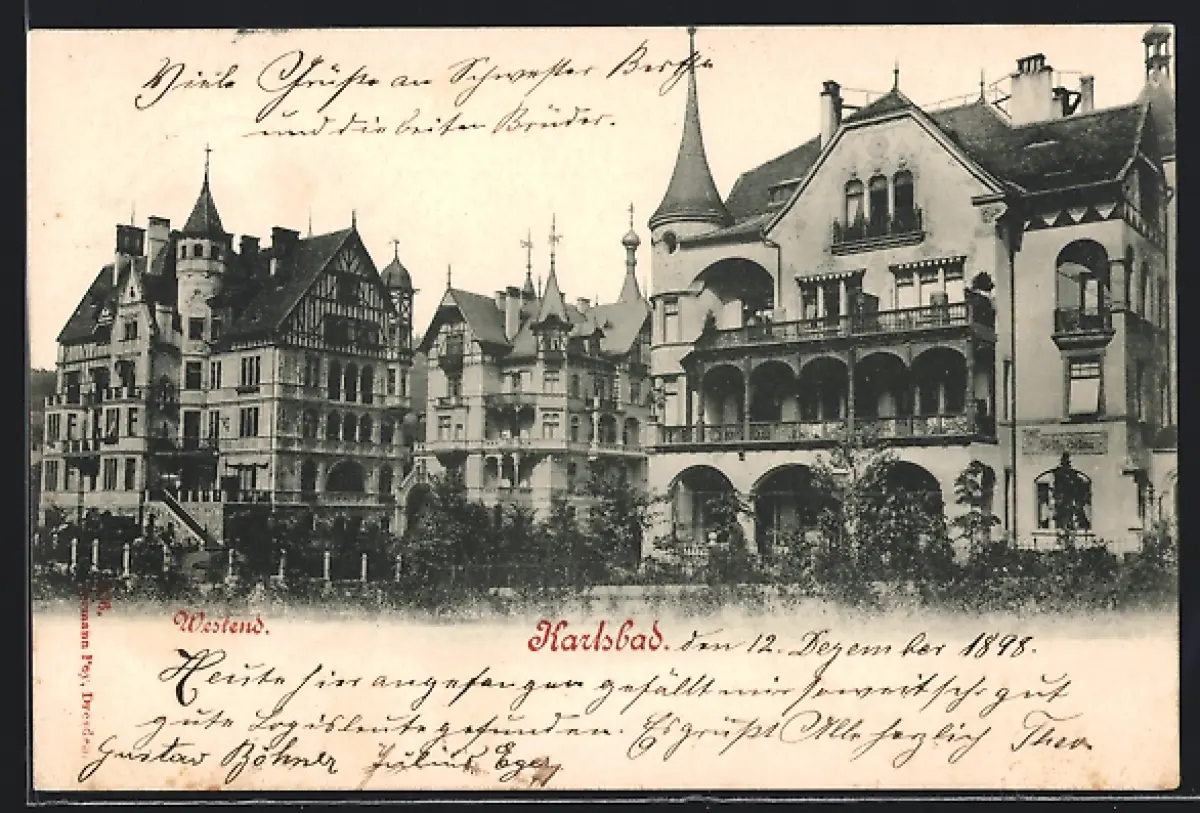 Viele Grüße an Schwester Bertha
und die beiten Brüder.
Westend.
Karlsbad. den 12. Dezember 1898.
Heute hier angefangen gefällt mir soweit sehr gut
gute Logisleute gefunden. Es grüßt Alle herzlich Theo
Gustav Böhner Julius Eger